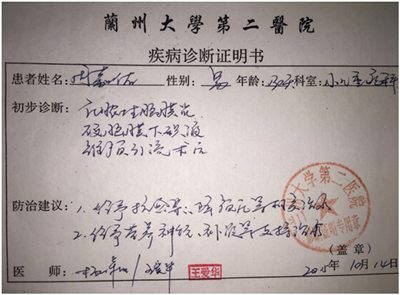 蘭州大學第二醫院
疾病诊断证明书
患者姓名: 周嘉佑 性别: 男 年龄: 科室: 小儿重症科
初步诊断: 化脓性脑膜炎
硬脑膜下积液
钻颅引流术后
防治建议: 1、给予抗感染、等对症治疗
2、给予营养神经、补液等支持治疗
大学第二医院
专用章
(盖章)
医师: 王爱华 2015年10月14日